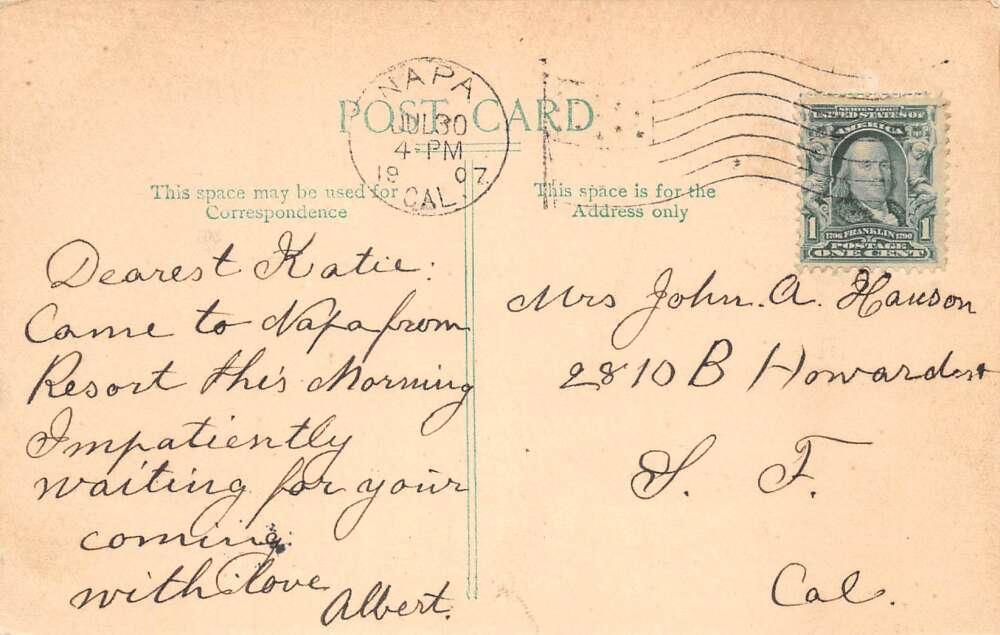 NAPA
JUL 30
4-PM
1907
CAL.
POST CARD
This space may be used for
Correspondence
This space is for the
Address only
SERIES 1902
UNITED STATES OF
AMERICA
1 1706 FRANKLIN 1790 1
POSTAGE
ONE CENT
Dearest Katie:
Came to Napa from
Resort this Morning
Impatiently
waiting for your
coming.
with love
Albert.
Mrs John. A. Hanson
2810 B Howard st
S. F.
Cal.